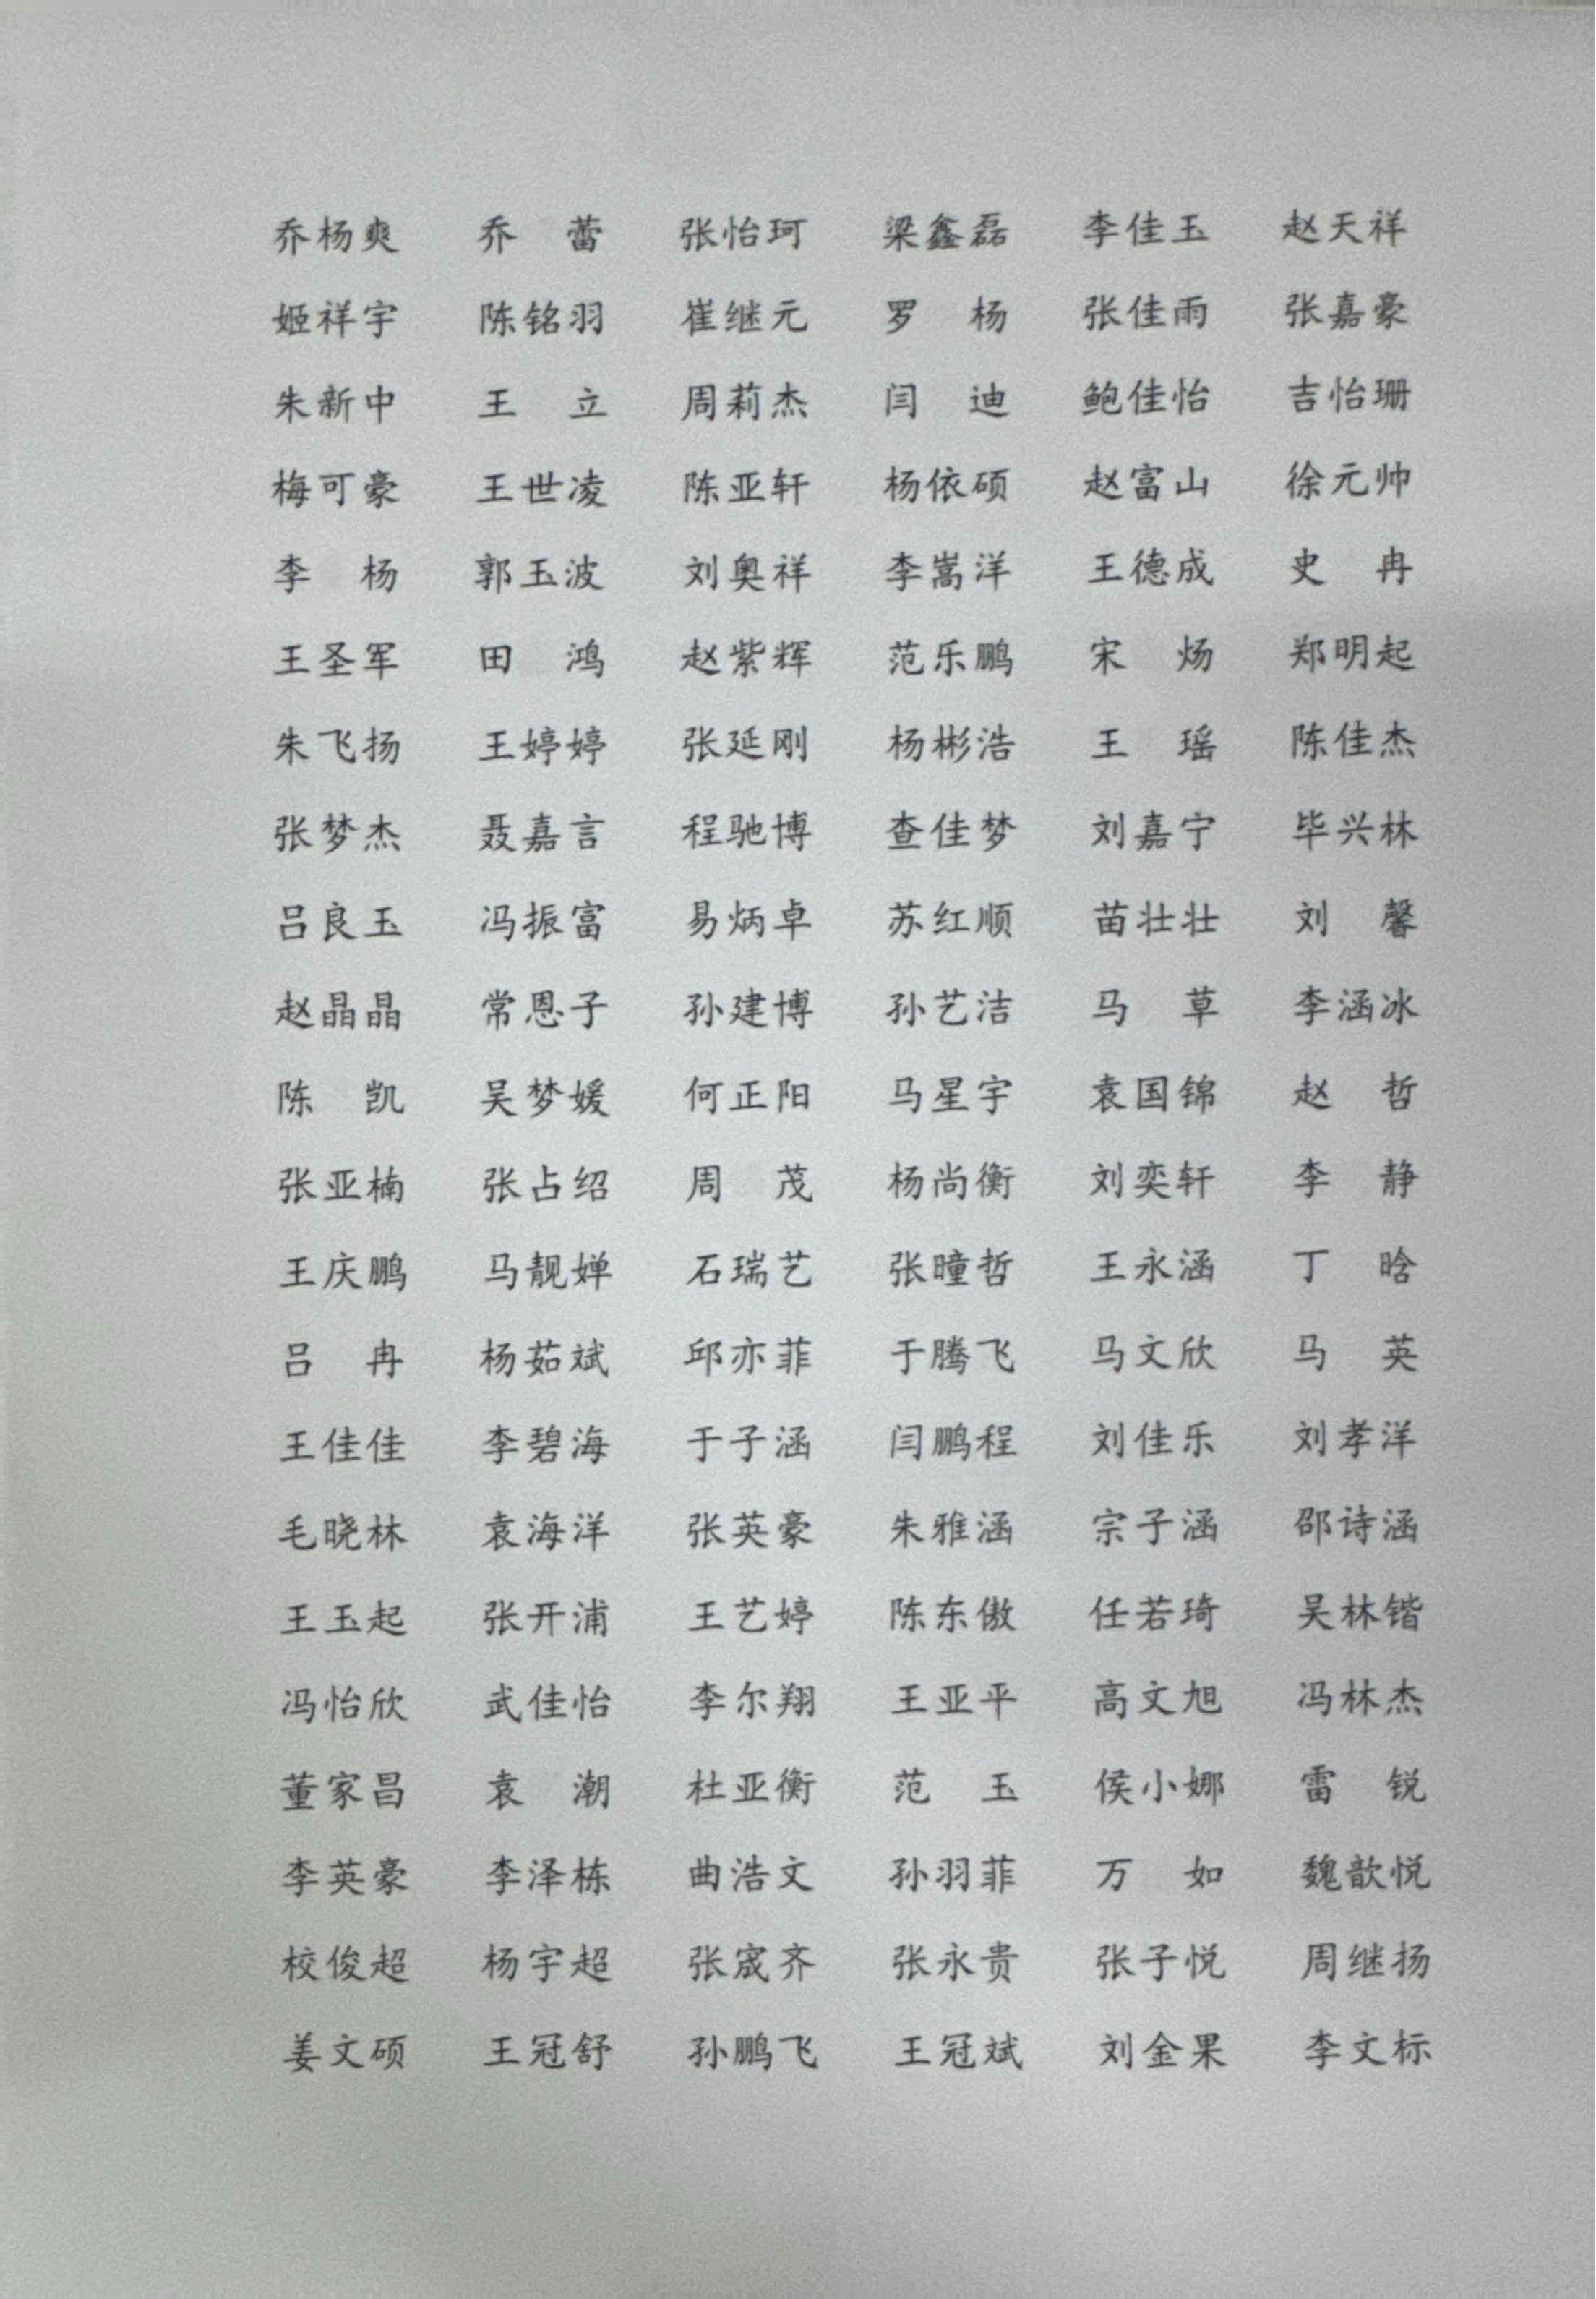 乔杨爽 乔 蕾 张怡珂 梁鑫磊 李佳玉 赵天祥
姬祥宇 陈铭羽 崔继元 罗 杨 张佳雨 张嘉豪
朱新中 王 立 周莉杰 闫 迪 鲍佳怡 吉怡珊
梅可豪 王世凌 陈亚轩 杨依硕 赵富山 徐元帅
李 杨 郭玉波 刘奥祥 李嵩洋 王德成 史 冉
王圣军 田 鸿 赵紫辉 范乐鹏 宋 炀 郑明起
朱飞扬 王婷婷 张延刚 杨彬浩 王 瑶 陈佳杰
张梦杰 聂嘉言 程驰博 查佳梦 刘嘉宁 毕兴林
吕良玉 冯振富 易炳卓 苏红顺 苗壮壮 刘 馨
赵晶晶 常恩子 孙建博 孙艺洁 马 草 李涵冰
陈 凯 吴梦媛 何正阳 马星宇 袁国锦 赵 哲
张亚楠 张占绍 周 茂 杨尚衡 刘奕轩 李 静
王庆鹏 马靓婵 石瑞艺 张曈哲 王永涵 丁 晗
吕 冉 杨茹斌 邱亦菲 于腾飞 马文欣 马 英
王佳佳 李碧海 于子涵 闫鹏程 刘佳乐 刘孝洋
毛晓林 袁海洋 张英豪 朱雅涵 宗子涵 邵诗涵
王玉起 张开浦 王艺婷 陈东傲 任若琦 吴林锴
冯怡欣 武佳怡 李尔翔 王亚平 高文旭 冯林杰
董家昌 袁 潮 杜亚衡 范 玉 侯小娜 雷 锐
李英豪 李泽栋 曲浩文 孙羽菲 万 如 魏歆悦
校俊超 杨宇超 张宬齐 张永贵 张子悦 周继扬
姜文硕 王冠舒 孙鹏飞 王冠斌 刘金果 李文标